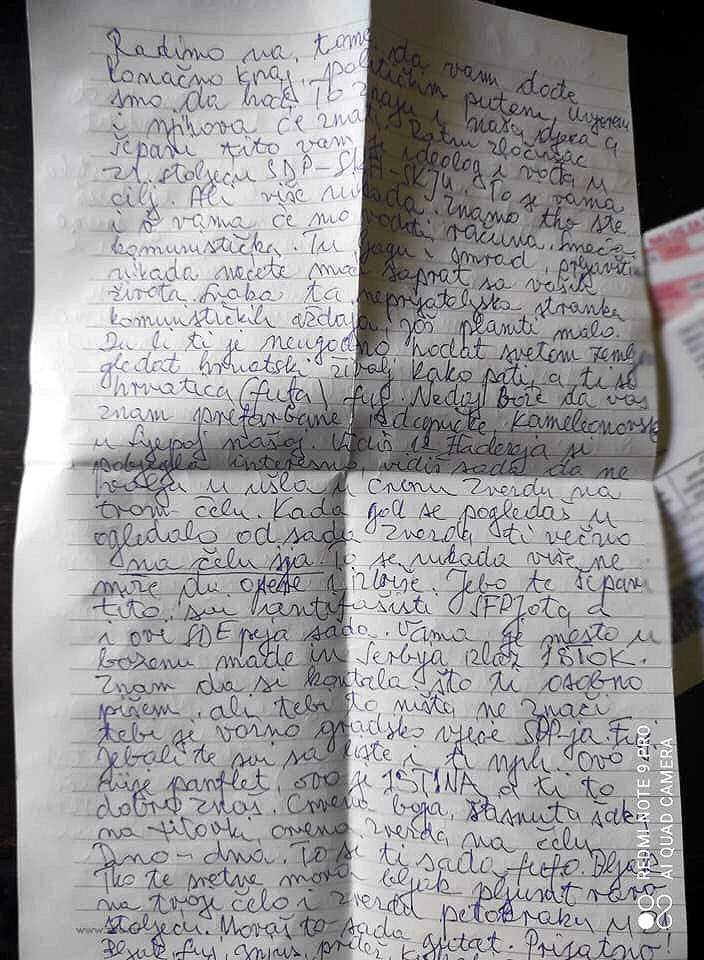 Radimo na tome da vam dođe
konačno kraj, političkim putem, uvjereni
smo da hoće. To znaju i naša djeca a
i njihova će znati. Ratni zločinac
Šćpani tito vam je ideolog i vođa u
21. stoljeću SDP-SKH-SKJ. To je vama
cilj. Ali više nikada. Znamo tko ste
i o vama ćemo voditi računa. Smeće
komunističko. Tu ljagu i smrad, prljavštinu
nikada nećete moći saprat sa vaših
života. Svaka ta neprijateljska stranka
komunističkih aždaja, još plamti malo.
Da li ti je neugodno hodat svetom zemljom
gledat hrvatski živalj kako pati, a ti si
hrvatica (fufa) fuj. Nedaj Bože da vas
znam prefarbane kameleonovske
u Ljepoj našoj. Vidiš iz Hadezeja si
pobjegla interesno, vidiš sada da ne
u ušla si Crvenu Zvezdu na
tvom čelu. Kada god se pogledaš u
ogledalo od sada zvezda ti večno
na čelu sja to se nikada više ne
može da opere i izbriše. Jebo te šćpani
tito, svi antifašisti SFRJota a
i ovi SDEpeja sada. Vama je mesto u
bazenu made in Serbya izlaz ISTOK.
Znam da si kontala što ti osobno
pišem, ali tebi to ništa ne znači
tebi je važno gradsko vjeće SDP-ja Fuj.
Jebali te svi sa liste i ti njih. Ovo
nije panflet, ovo je ISTINA a ti to
dobro znaš. Crvena boja, stisnuta šaka
na titovki crvena zvezda na čelu
Dno-dna. To si ti sada fufo. Bljak
Tko te sretne mora bljak pljunut ravno
na tvoje čelo i zvezdu petokraku u 21
stoljeću. Moraš to sada gutat. Prijatno!
Bljak, fuj, gnjus,
REDMI NOTE 9 PRO
AI QUAD CAMERA